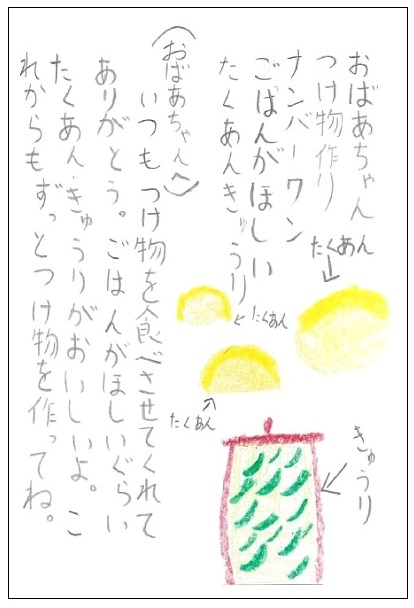 おばあちゃん
つけ物作り
ナンバーワン
ごはんがほしい
たくあんきゅうり
たくあん
たくあん
たくあん
きゅうり
(おばあちゃんへ)
いつもつけ物を食べさせてくれて
ありがとう。ごはんがほしいぐらい
たくあん・きゅうりがおいしいよ。こ
れからもずっとつけ物を作ってね。